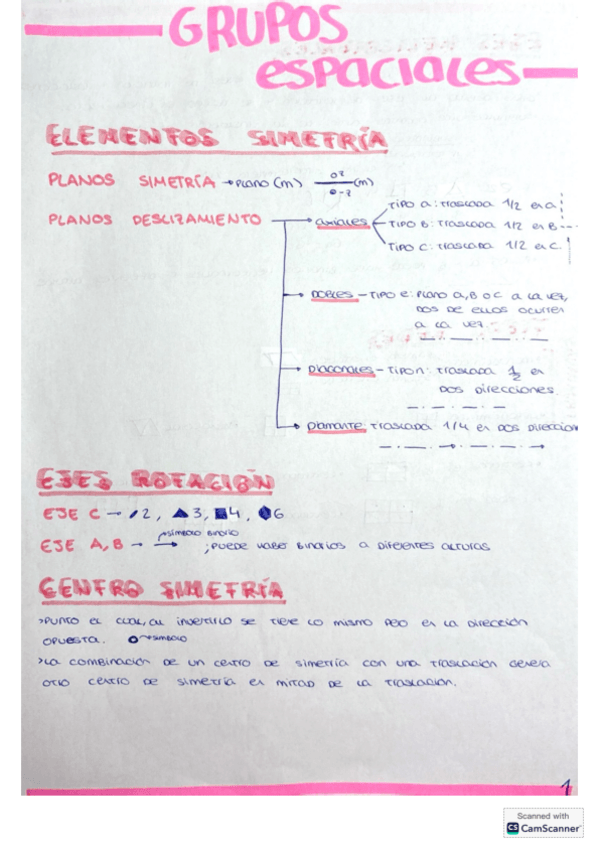 GRUPOS
ESPACIALES
ELEMENTOS SIMETRÍA
PLANOS SIMETRÍA → PLANO (m) (m)
PLANOS DESLIZAMIENTO
AXIALES
TIPO a: TRASLADA 1/2 en a
TIPO B: TRASLADA 1/2 en B
TIPO C: TRASLADA 1/2 en C.
DOBLES - TIPO e: PLANO a, B o C a la vez,
DOS DE ELLOS OCURREN
a la vez.
DIAGONALES - TIPO n: TRASLADA 1/2 en
DOS DIRECCIONES.
DIAMANTE: TRASLADA 1/4 en DOS DIRECCION
EJES ROTACIÓN
EJE C → 2, 3, 4, 6
símbolo binario
EJE A, B → ; PUEDE HABER BINARIOS A DIFERENTES ALTURAS
CENTRO SIMETRÍA
>PUNTO EL CUAL, AL INVERTIRLO SE TIENE LO MISMO PERO EN LA DIRECCIÓN
OPUESTA. o → símbolo
>LA COMBINACIÓN DE UN CENTRO DE SIMETRÍA CON UNA TRASLACIÓN GENERA
OTRO CENTRO DE SIMETRÍA EN MITAD DE LA TRASLACIÓN.
1
Scanned with
CS CamScanner